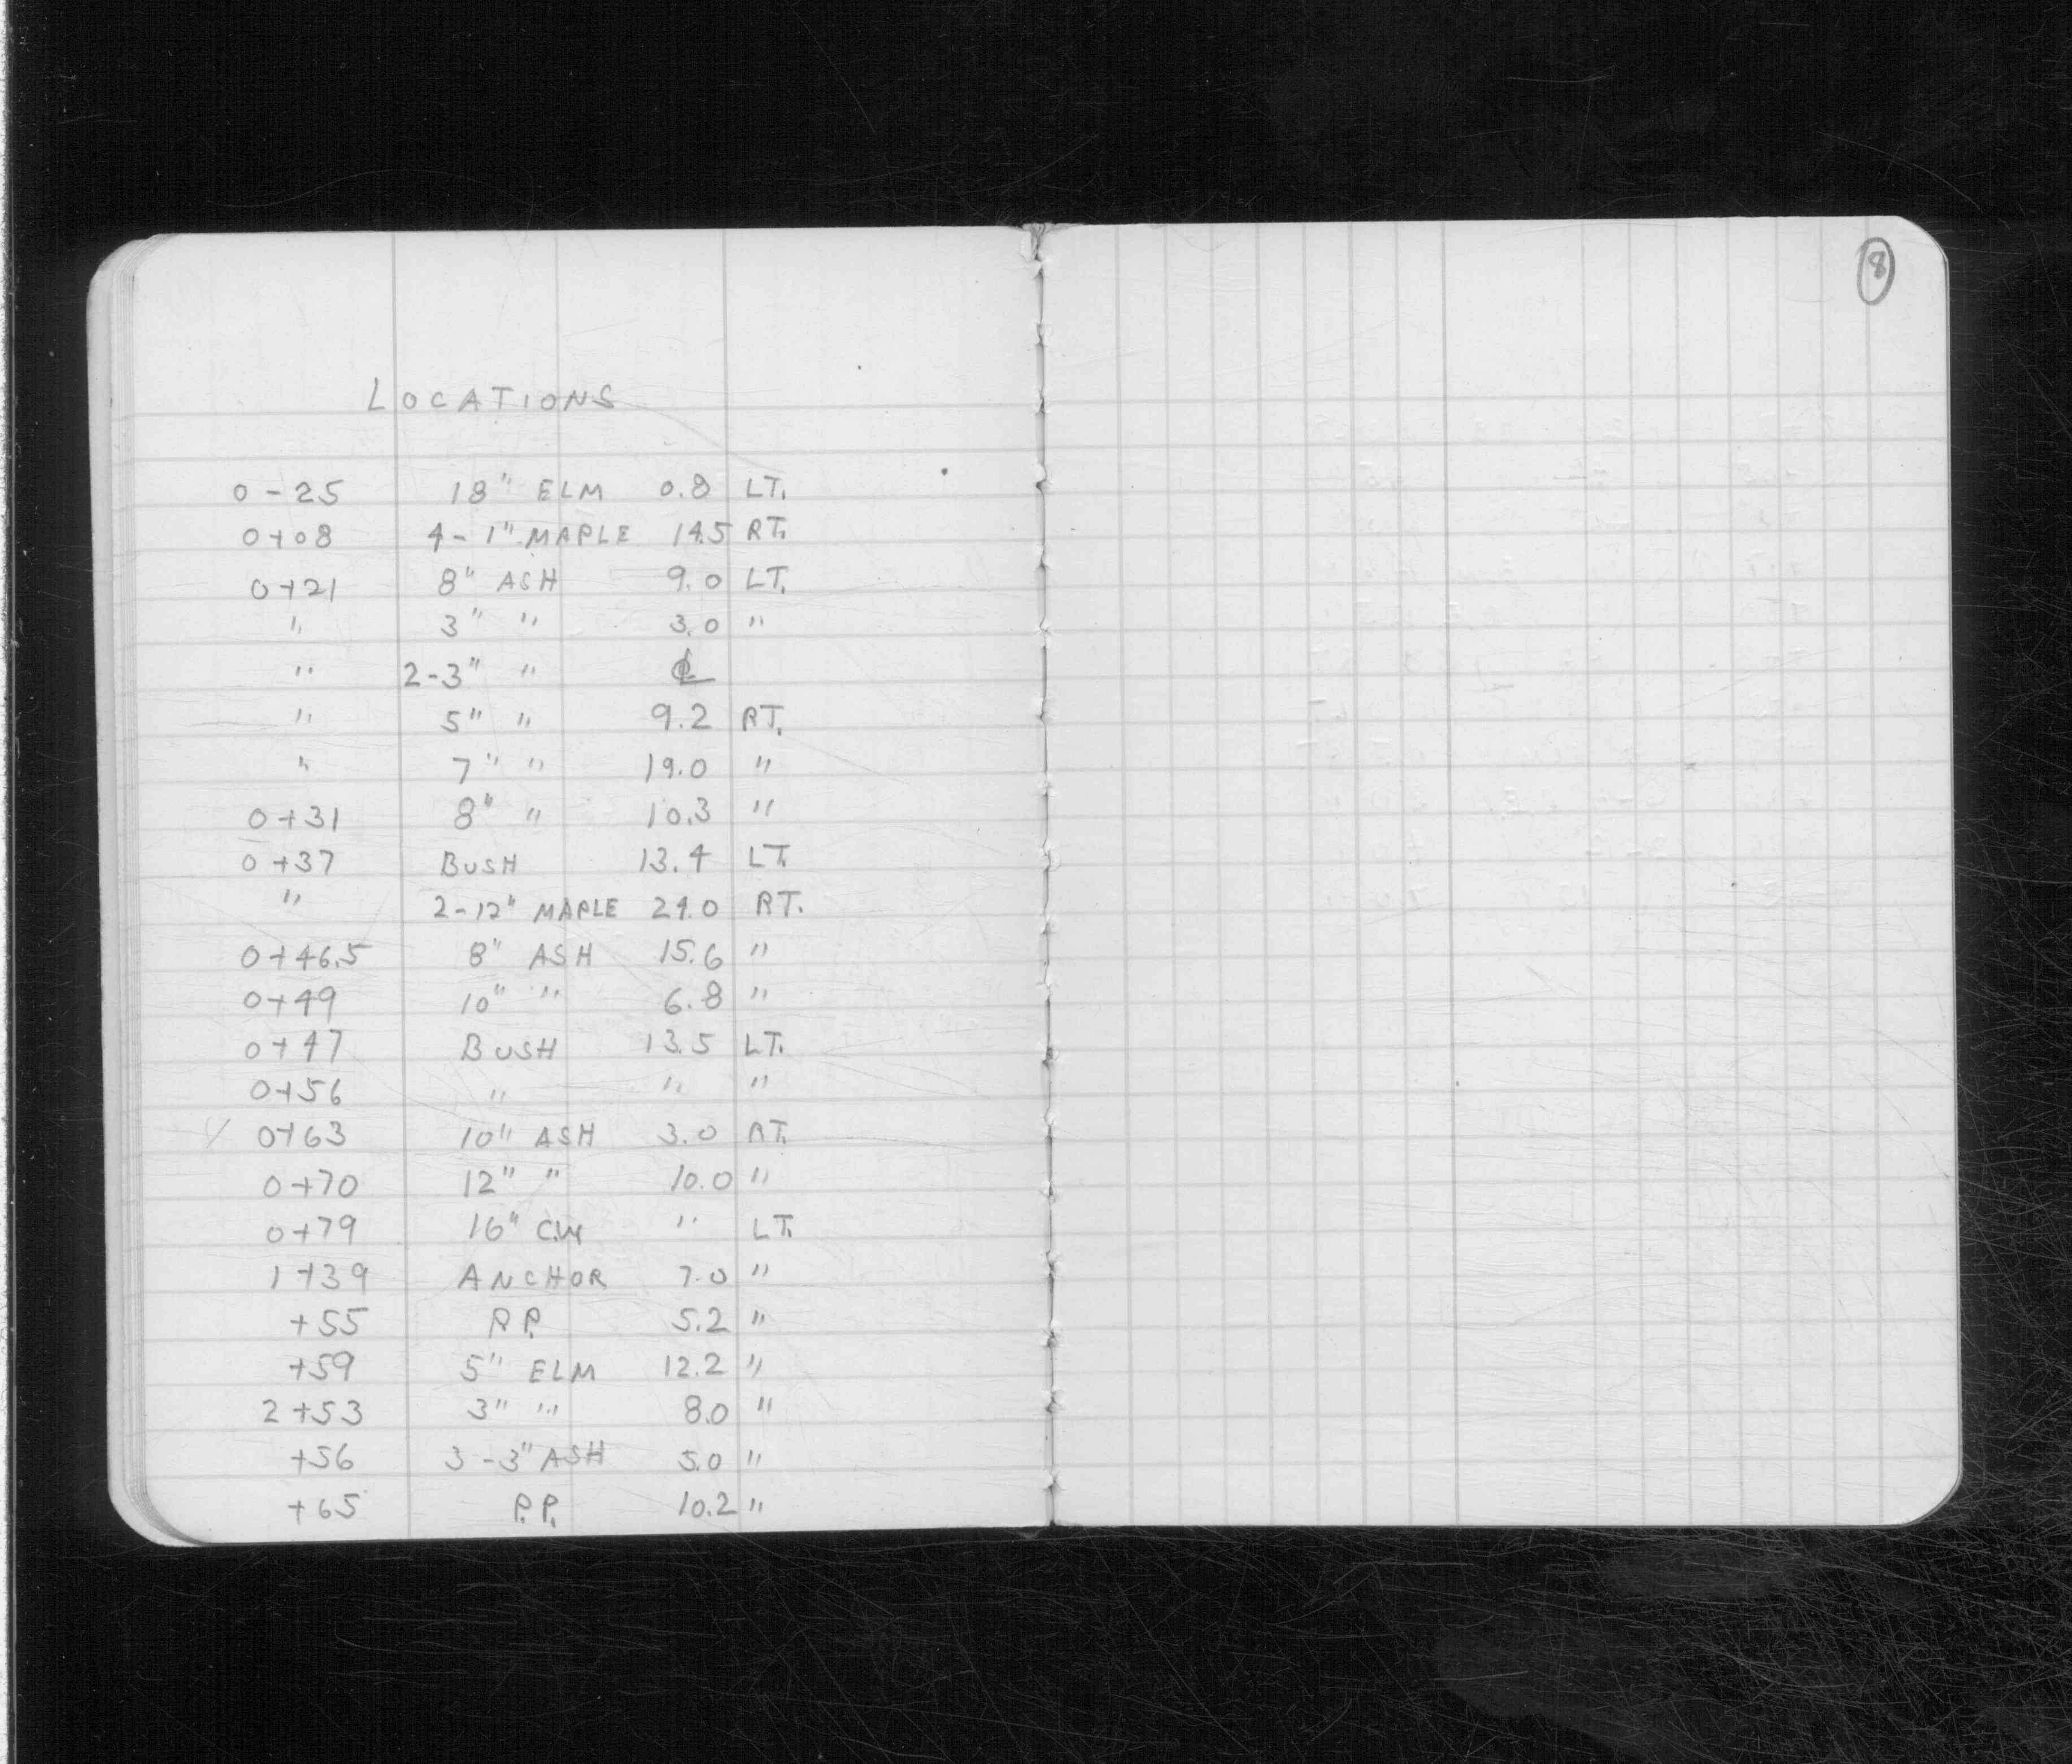 8
LOCATIONS
0-25 18" ELM 0.8 LT.
0+08 4-1" MAPLE 14.5 RT.
0+21 8" ASH 9.0 LT.
" 3" " 3.0 "
" 2-3" " ℄
" 5" " 9.2 RT.
" 7" " 19.0 "
0+31 8" " 10.3 "
0+37 BUSH 13.4 LT.
" 2-12" MAPLE 24.0 RT.
0+46.5 8" ASH 15.6 "
0+49 10" " 6.8 "
0+47 BUSH 13.5 LT.
0+56 " " "
0+63 10" ASH 3.0 RT.
0+70 12" " 10.0 "
0+79 16" C.W. " LT.
1+39 ANCHOR 7.0 "
+55 P.P. 5.2 "
+59 5" ELM 12.2 "
2+53 3" " 8.0 "
+56 3-3" ASH 5.0 "
+65 P.P. 10.2 "